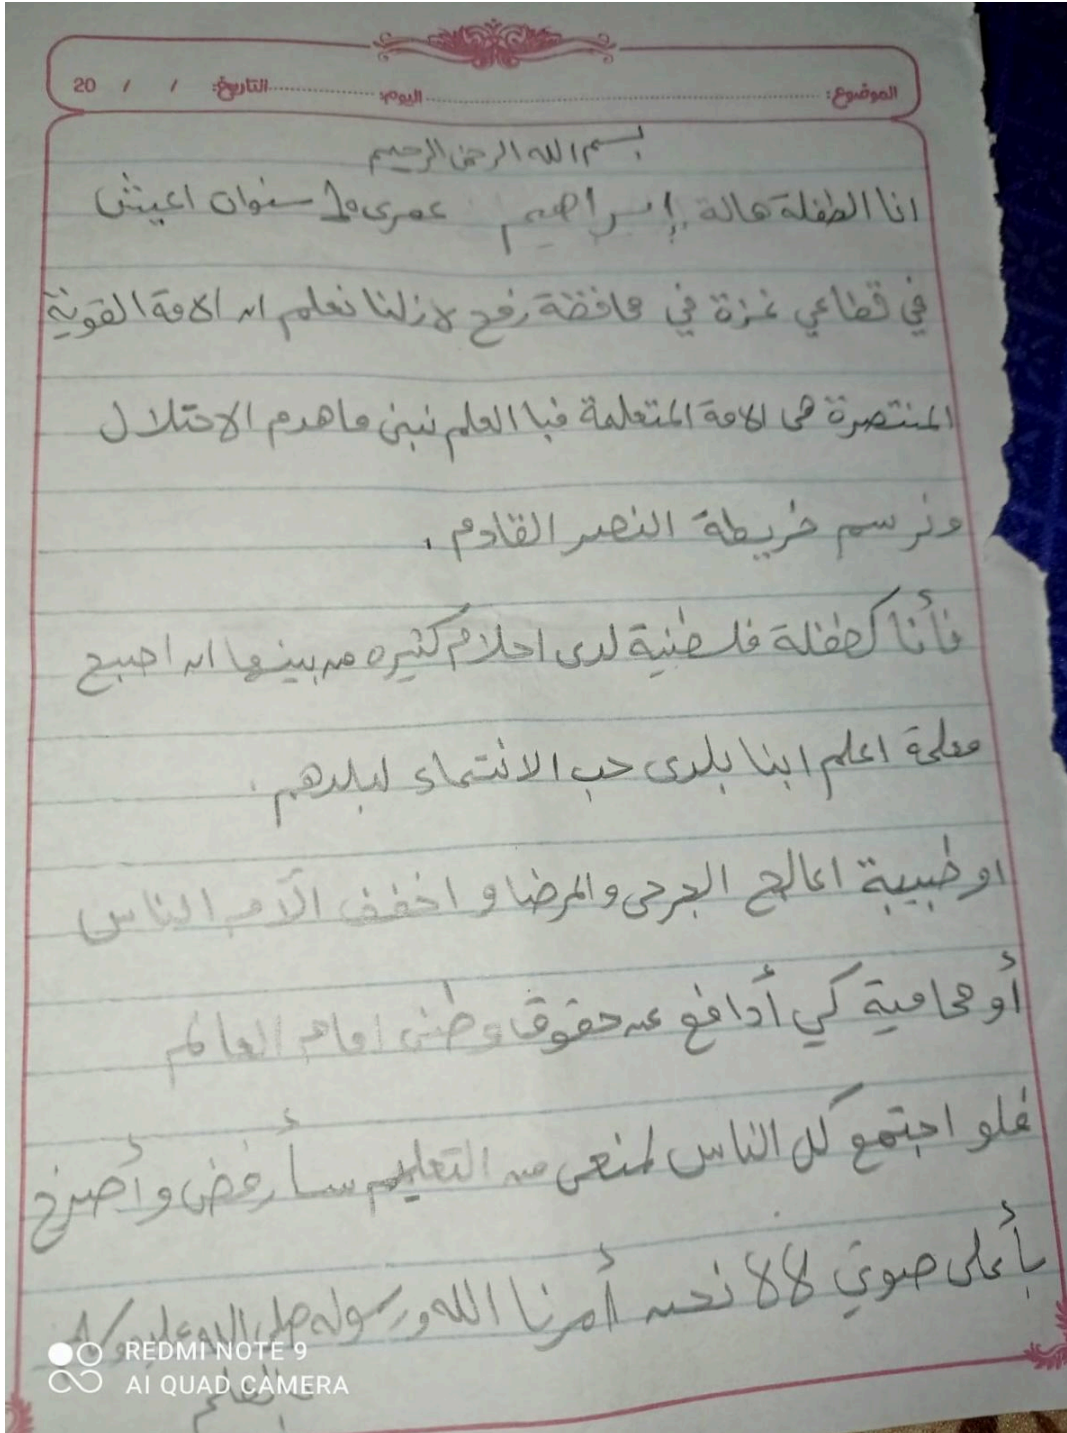 الموضوع: اليوم: التاريخ: / / 20
بسم الله الرحمن الرحيم
انا الطفلة هالة إبراهيم عمرى 10 سنوان اعيش
في قطاعي غزة في محافظة رفح لازلنا نعلم ان الامة القوية
المنتصرة هى الامة المتعلمة فبا العلم نبنى ما هدم الاحتلال
ونرسم خريطة النصر القادم.
فأنا كطفلة فلسطنية لدى احلام كثيره من بينها ان اصبح
معلمة اعلم ابنا بلدى حب الانتماء لبلدهم.
او طبيبة اعالج الجرحى والمرضا و اخفف الآم الناس
أو محامية كي أدافع عن حقوق وطنى امام العالم
فلو اجتمع كل الناس لمنعى من التعليم سأرفض وأصرخ
بأعلى صوتي لالا نحن أمرنا الله ورسوله صلى الله عليه و
بالعلم
REDMI NOTE 9
AI QUAD CAMERA